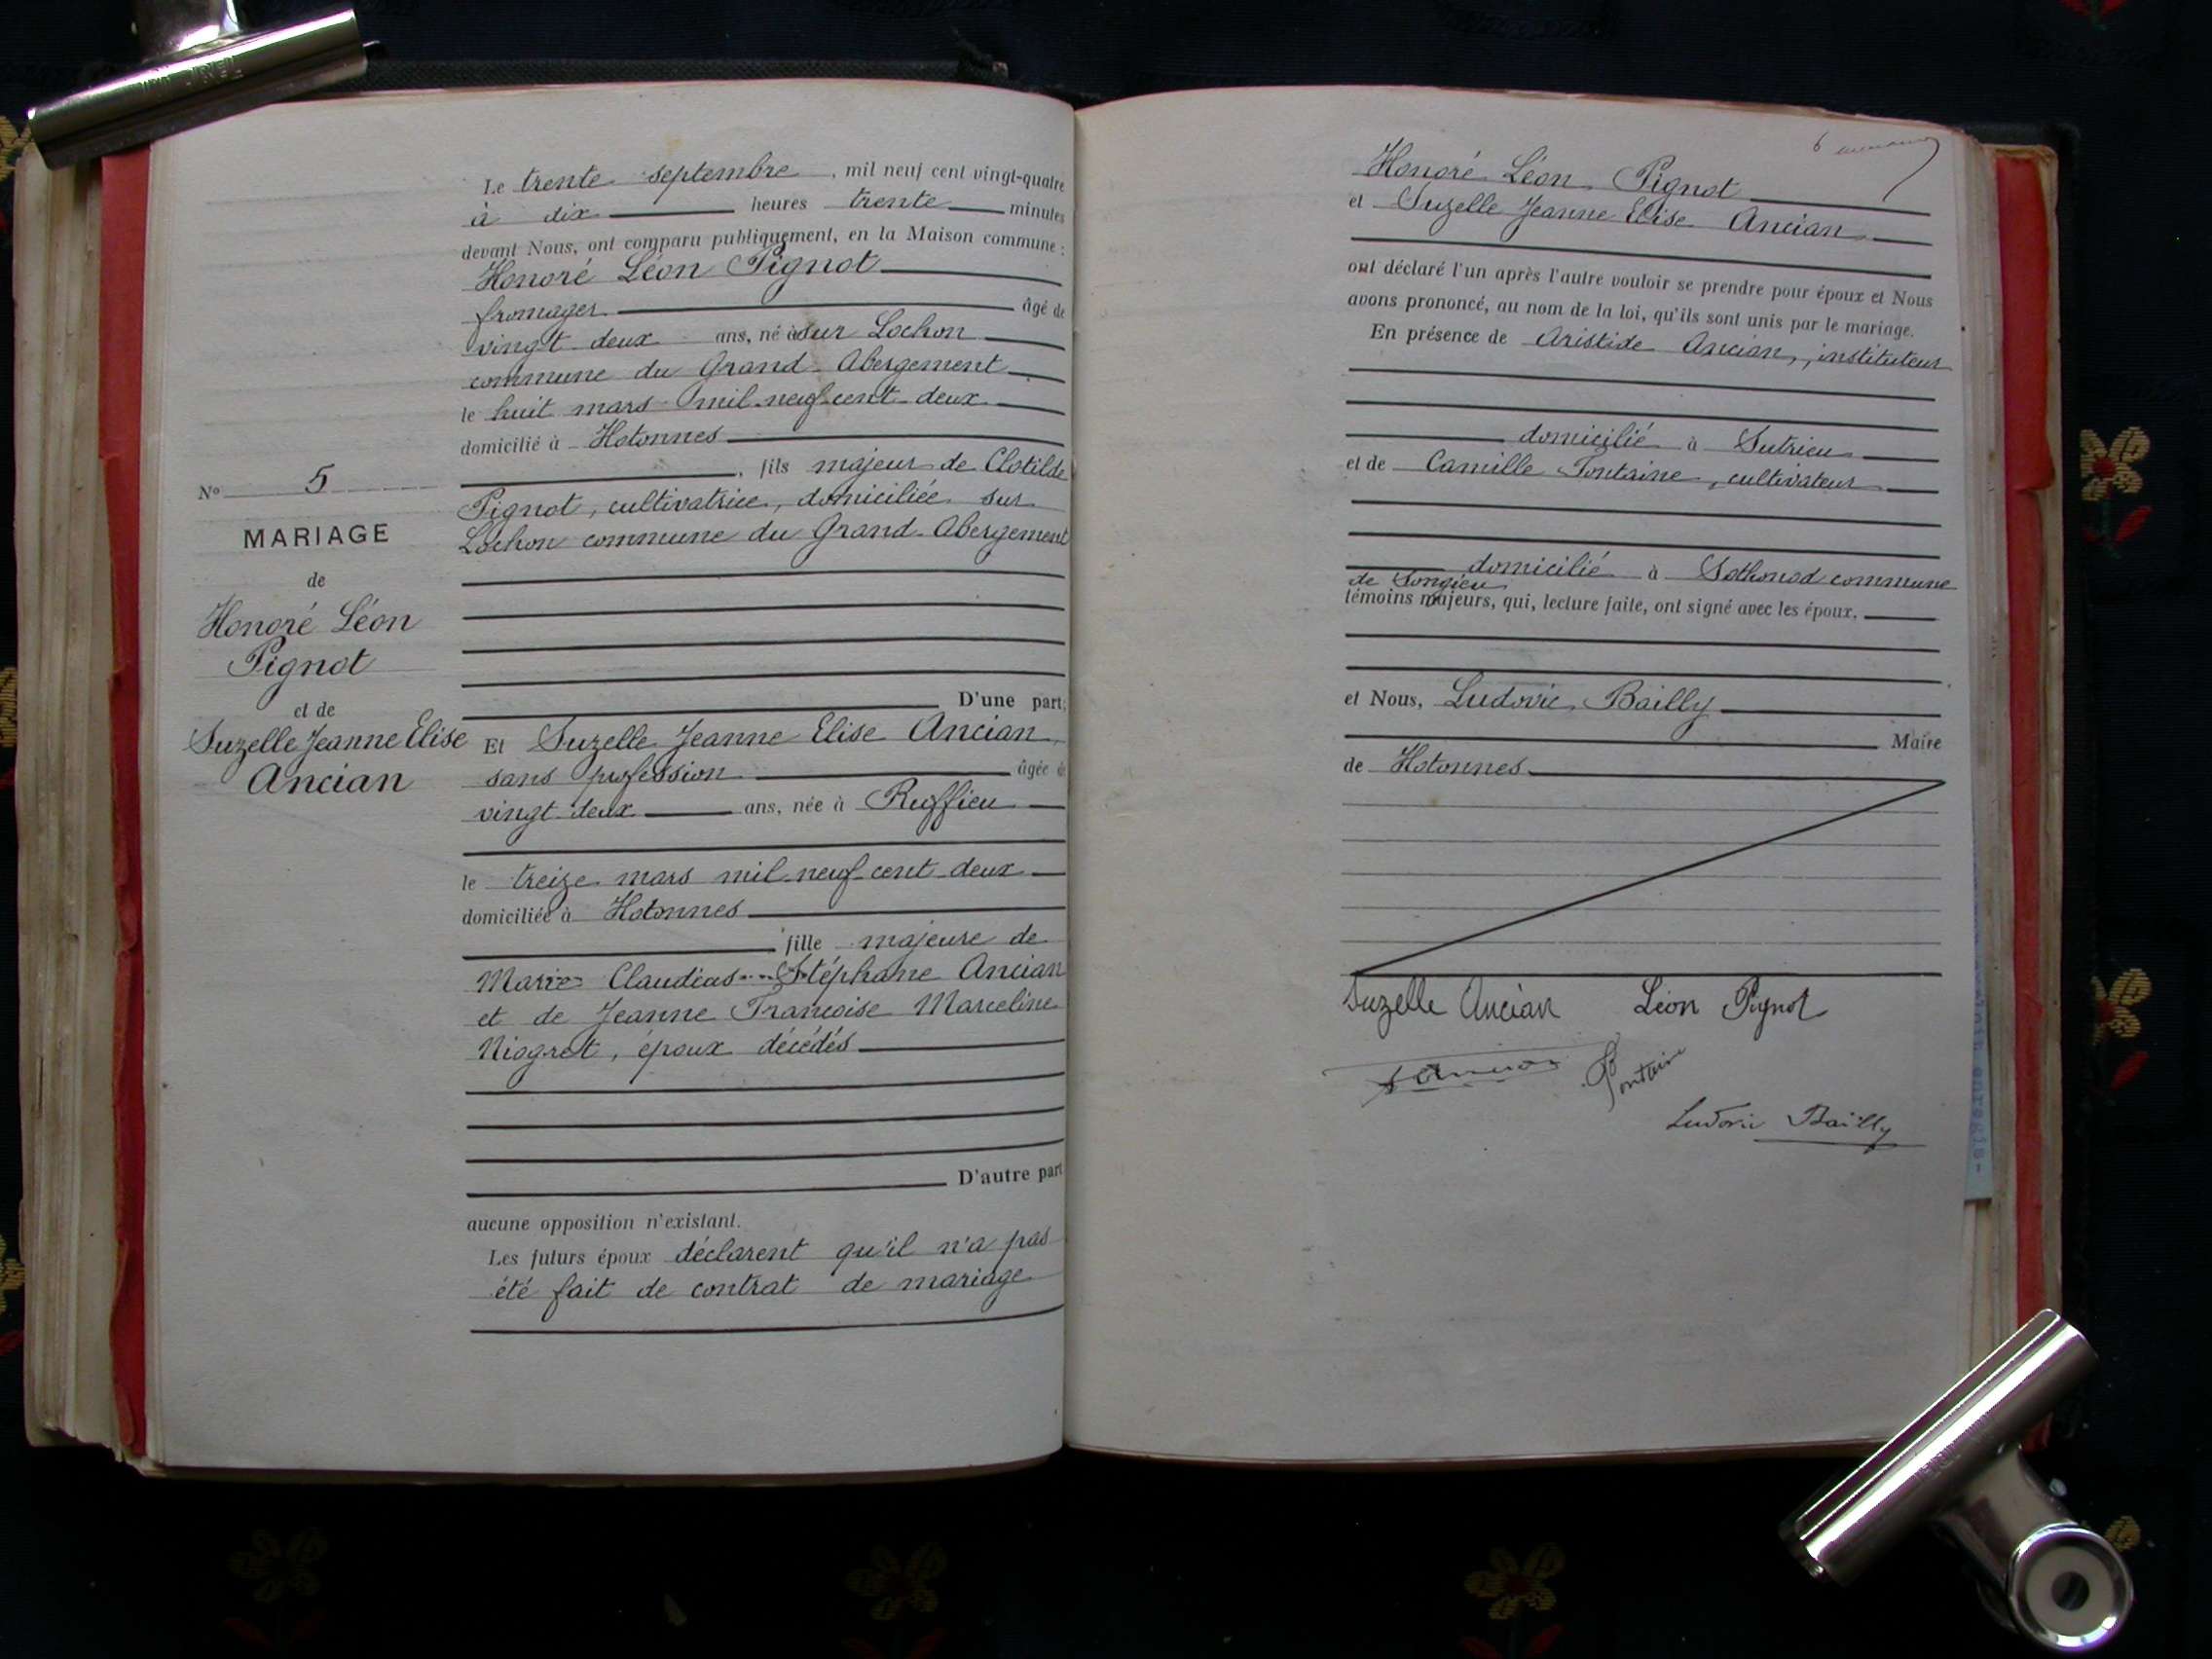 N° 5
MARIAGE
de
Honoré Léon
Pignot
et de
Suzelle Jeanne Elise
Ancian
Le trente septembre, mil neuf cent vingt-quatre
à dix heures trente minutes
devant Nous, ont comparu publiquement, en la Maison commune :
Honoré Léon Pignot
fromager âgé de
vingt deux ans, né à sur Lochon
commune du Grand-Abergement
le huit mars mil-neuf-cent-deux
domicilié à Hotonnes
, fils majeur de Clotilde
Pignot, cultivatrice, domiciliée sur
Lochon commune du Grand-Abergement
D'une part;
Et Suzelle Jeanne Elise Ancian,
sans profession âgée de
vingt-deux ans, née à Ruffieu
le treize mars mil-neuf-cent-deux
domiciliée à Hotonnes
fille majeure de
Marie Claudius Stéphane Ancian
et de Jeanne Françoise Marceline
Niogret, époux décédés
D'autre part
aucune opposition n'existant.
Les futurs époux déclarent qu'il n'a pas
été fait de contrat de mariage
Honoré Léon Pignot
et Suzelle Jeanne Elise Ancian
ont déclaré l'un après l'autre vouloir se prendre pour époux et Nous
avons prononcé, au nom de la loi, qu'ils sont unis par le mariage.
En présence de Aristide Ancian, instituteur
domicilié à Sutrieu
et de Camille Fontaine, cultivateur
domicilié à Sothonod commune
de Songieu
témoins majeurs, qui, lecture faite, ont signé avec les époux,
et Nous, Ludovic Bailly
Maire
de Hotonnes
Suzelle Ancian Léon Pignot
Fontaine
Ludovic Bailly